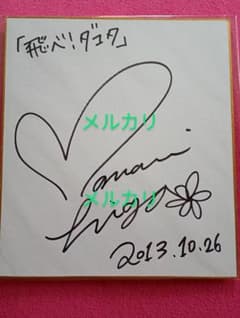 「飛べ!ダコタ」
メルカリ
メルカリ
2013.10.26